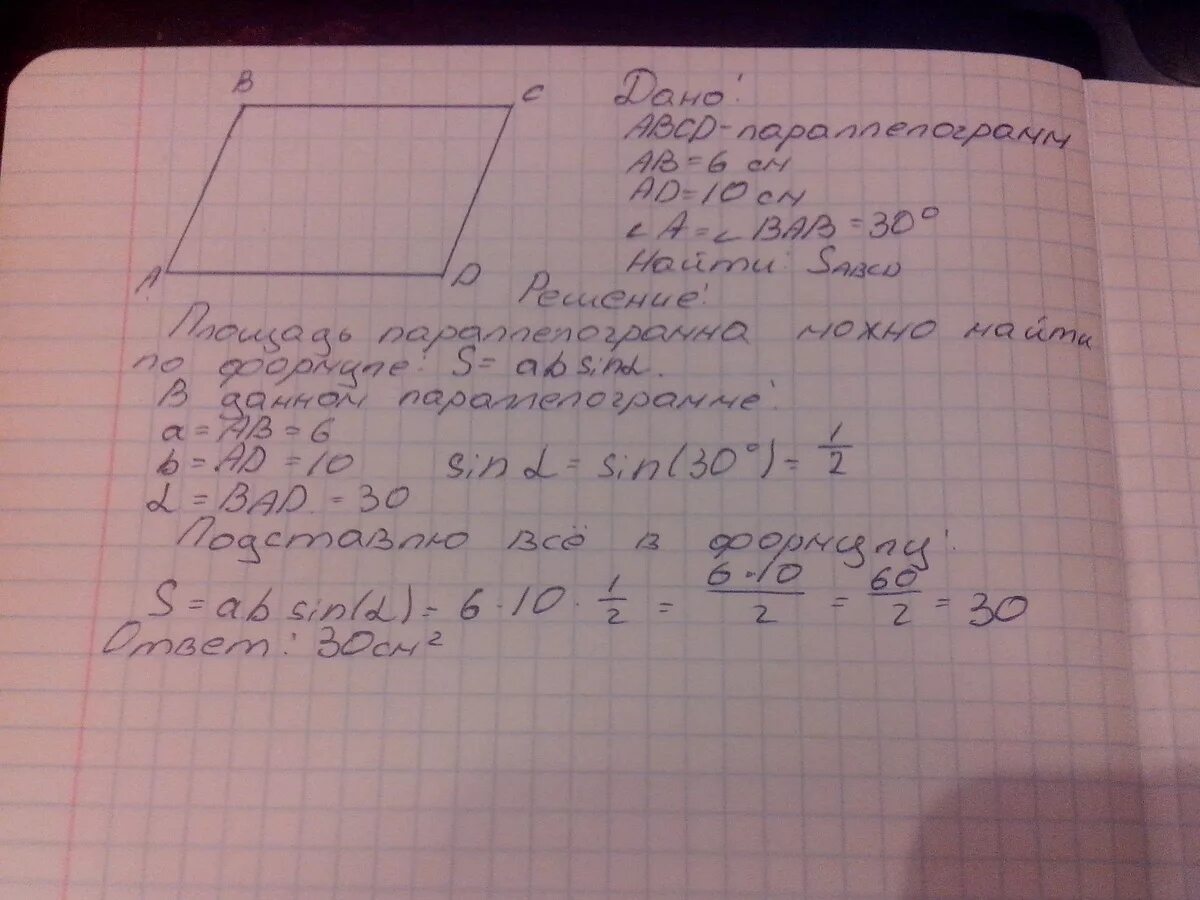 B
C
A
D
Дано:
ABCD-параллелограмм
AB=6 см
AD=10 см
∠A=∠BAB=30°
Найти: SABCD
Решение:
Площадь параллелограмма можно найти
по формуле: S= ab sinα.
В данном параллелограмме:
a=AB=6
b=AD=10 sinα=sin(30°)=1/2
α=BAD.=30
Подставлю всё в формулу:
S=ab sin(α)=6·10·1/2=6·10/2=60/2=30
Ответ: 30см²